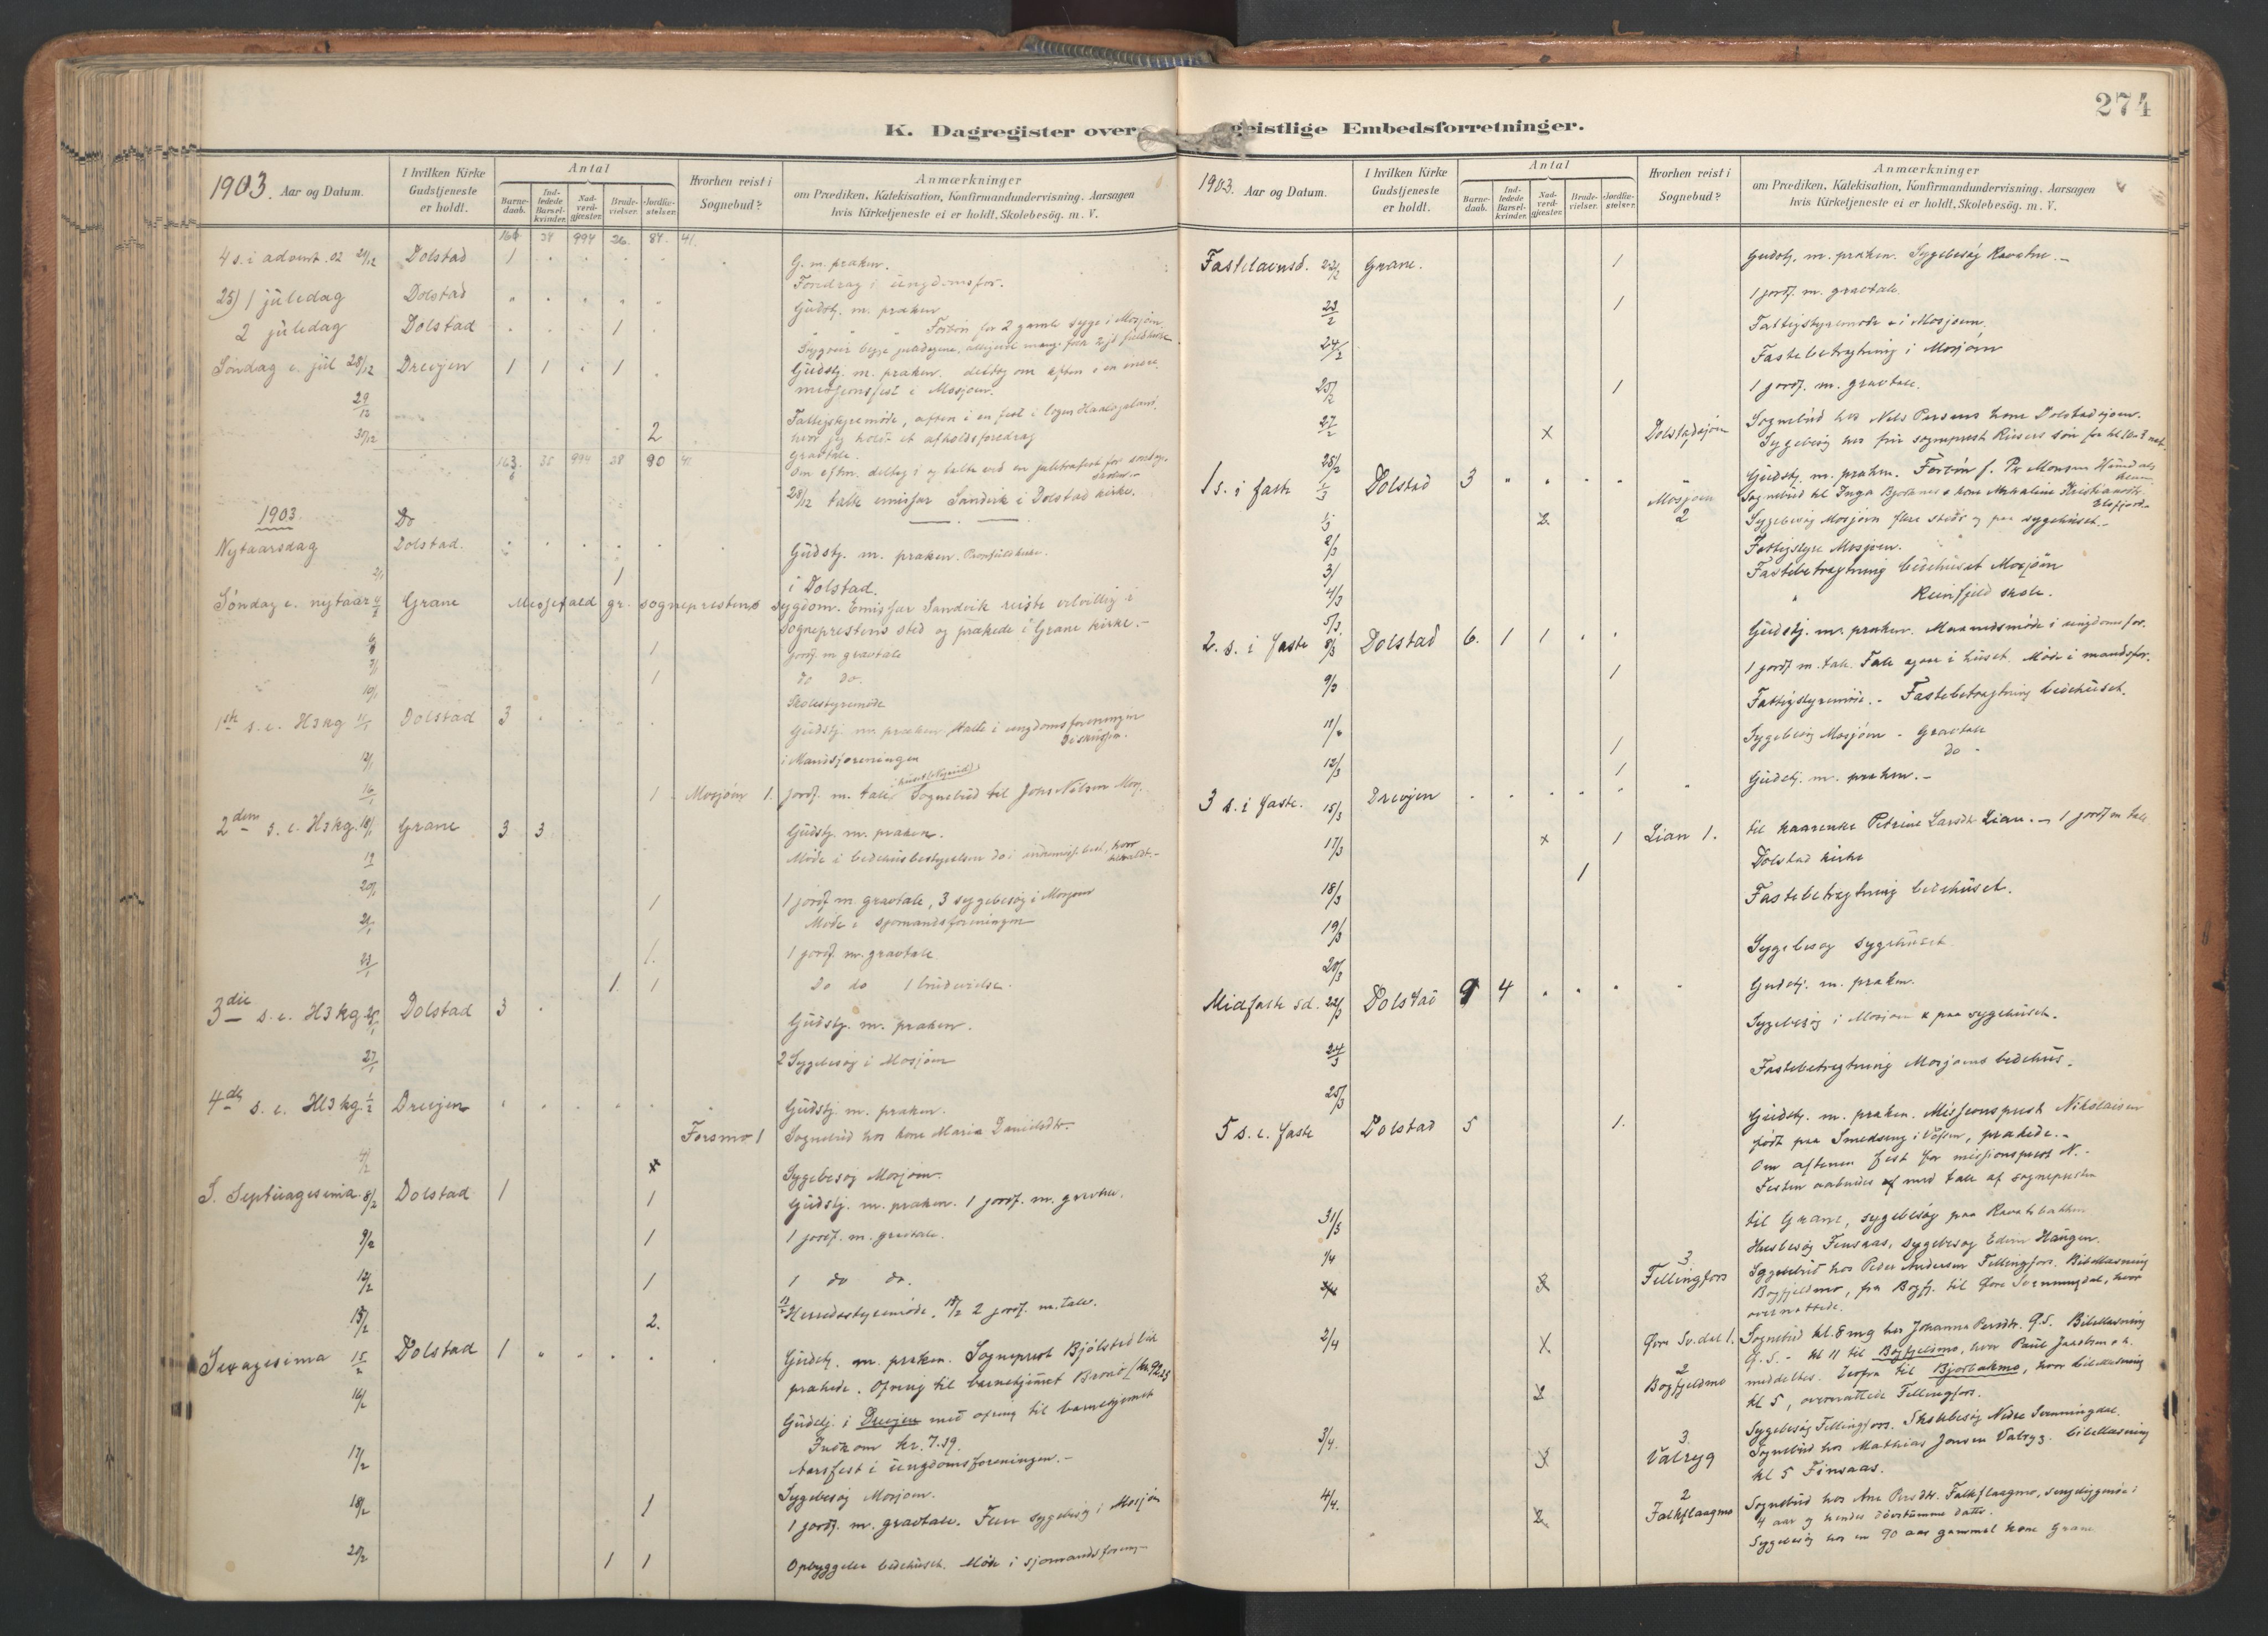 274
K. Dagregister over geistlige Embedsforretninger.
1903. Aar og Datum. I hvilken Kirke Gudstjeneste er holdt. Antal Barnedaab. Indledede Barselkvinder. Nadverdgjæster. Brudevielser. Jordfæstelser. Hvorhen reist i Sognebud? Anmærkninger om Prædiken, Katekisation, Konfirmandundervisning. Aarsagen hvis Kirketjeneste ei er holdt, Skolebesög. m. V.
34 994 26. 84. 41.
4 s. i advent. 02 21/12 Dolstad 1 G. m. præken.
Foredrag i ungdomsfor.
25) 1 juledag Dolstad Gudstj. m. præken
2 juledag Dolstad 1 Forbön for 2 gamle syge i Mosjöen
Söndag e. jul 28/12 Drevjen 1 1 1 Gudstj. m. præken. deltog om aften i en indre
missionsfest i Mosjöen.
29/12 Fattigstyremöde, aften i en fest i logen Haalogaland,
30/12 2 hvor jeg holdt et afholdsforedrag
gravtale.
163 35 994 28 90 41 Om eftm. deltog i og talte ved en juletræfest for söndagsskolen
28/12 talte emissær Sandvik i Dolstad kirke.
1903. Do
Nytaarsdag Dolstad. Gudstj. m. præken.
2/1 1 i Dolstad.
Söndag e. nytaar 4/1 Grane Messefald gr. sogneprestens sygdom. Emissær Sandvik reiste velvillig i
sogneprestens sted og prækede i Grane kirke.-
6/1 1 jordf. m gravtale
7/1 1 do do.
10/1 Skolestyremöde
1ste s. e. H3kg 11/1 Dolstad 3 Gudstj. m. præken. Talte i ungdomsforeningen
12/1 i Mandsforeningen
16/1 1 Mosjöen 1. jordf. m. tale, Sognebud til Johs Nilsen Mosj.
2den s. e. H3kg. 18/1 Grane 3 3 Gudstj. m. præken.
19/1 Möde i bedehusbestyrelsen do i
20/1 1 1 jordf m. gravtale, 3 sygebesög i Mosjöen
21/1 Möde i sjömandsforeningen
1. 1 jordf. m. gravtale
23/1 1. 1 Do do 1 brudevielse.
3die s. e. H3kg 25/1 Dolstad 3 Gudstj. m. præken.
27/1 2 Sygebesög i Mosjöen
4de s. e. Hl3kg. 1/2 Drevjen Gudstj. m. præken.
Forsmo 1 Sognebud hos kone Maria Danielsdtr.
4/2 x Sygebesög Mosjöen.
S. Septuagesima 8/2 Dolstad 1 1 Gudstj. m. præken. 1 jordf. m. gravtale.
9/2 1 1 jordf. m. gravtale.
12/2 1 1 do do.
15/2 2. Herredsstyremöde. 2 jordf. m. tale.
Sexagesima 15/2 Dolstad 1 Gudstj. m. præken. Sogneprest Bjölstad
prækede. Ofring til barnehjemmet Brönö
16/2 Gudstj. i Drevjen med ofring til barnehjemmet
Indkom kr. 7.39.
17/2 Aarsfest i ungdomsforeningen.-
Sygebesög Mosjöen.
18/2 1 1 jordf. m. gravtale. Flere sygebesög i Mosjöen
20/2 1 1 Opbyggelse bedehuset. Möde i sjömandsforen-
1903. Aar og Datum. I hvilken Kirke Gudstjeneste er holdt. Antal Barnedaab. Indledede Barselkvinder. Nadverdgjæster. Brudevielser. Jordfæstelser. Hvorhen reist i Sognebud? Anmærkninger om Prædiken, Katekisation, Konfirmandundervisning. Aarsagen hvis Kirketjeneste ei er holdt, Skolebesög. m. V.
Fastelavnsd. 22/2 Grane. 1 Gudstj. m. præken. Sygebesög
1 jordf. m. gravtale.
23/2 1 Fattigstyremöde i Mosjöen.
24/2 Fastebetragtning i Mosjöen
25/2 1 1 jordf. m. gravtale.
27/2 x Dolstadsjöen Sognebud hos Nels Persens kone Dolstadsjöen.
Sygebesög hos fru sogneprest
1 s. i faste 1/3 Dolstad 3 Gudstj. m. præken. Forbön f.
Mosjöen 2 Sognebud til Inga
Sygebesög Mosjöen flere steds og paa sygehuset.-
2/3 Fattigstyre Mosjöen.
3/ Fastebetragtning bedehuset Mosjöen
4/3 " Reinfjeld skole.
5/3.
2. s. i faste 8/3 Dolstad 6. 1 1 Gudstj. m. præken. Maanedsmöde i ungdomsfor.
9/3 1 1 jordf m. tale. Tale ogsaa i huset. Möde i mandsfor.
Fattigstyremöde.- Fastebetragtning bedehuset.
1 Sygebesög Mosjöen - Gravtale
12/3 1 do -
3 s. i faste. 15/3 Drevjen Gudstj. m. præken.-
17/3 x 1 Lian 1. til Petrine Larsdtr Lian. - 1 jordf m tale
1 Dolstad kirke
18/3 Fastebetragtning bedehuset.
19/3 Sygebesög sygehuset
20/3
Midfaste sd. 22/3 Dolstad 9 4 Gudstj. m. præken.
24/3 Sygebesög i Mosjöen & paa sygehuset.
25/3 Fastebetragtning Mosjöens bedehus.
5 s. i. faste Dolstad 5 1. Gudstj. m. præken. Missionsprest Nikolaisen
födt paa Smedseng i Vefsen, prækede.-
Om aftenen fest for missionsprest N.-
Festen aabnedes af med tale af sognepresten
31/3 til Grane, sygebesög paa
1/4 Husbesög Finsaas, sygebesög Edvin Haugen.
3 Fellingfors Sognebud hos Peder Andersen Fellingfors. Bibellæsning
Bogfjeldmo, fra Bogfj. til Övre Svenningdal, hvor
overnattede.
2/4 x Övre Sv.dal 1. Sognebud kl. 8 mg hos Johanna Persdtr. Ö.S. Bibellæsning
Ö. S. - kl 11 til Bogfjelsmo, hvor Paul
2 Bogfjeldmo meddeltes. Derfra til Bjortakmo, hvor bibellæsning
kl 5, overnattede Fellingfors.
3/4. Sygebesög Fellingfors. Skolebesög Nedre Svenningdal.
3 Valryg Sognebud hos Mathias Jonsen Valryg. bibellæsning
kl 5 Finsaas.
4/4. 2 Falkflaagmo Sognebud hos Ane Persdtr. Falkflaagmo, sengeliggende i
4 aar og hendes dövstumme datter.
Sygebesög hos en 90 aar gammel kone Grane